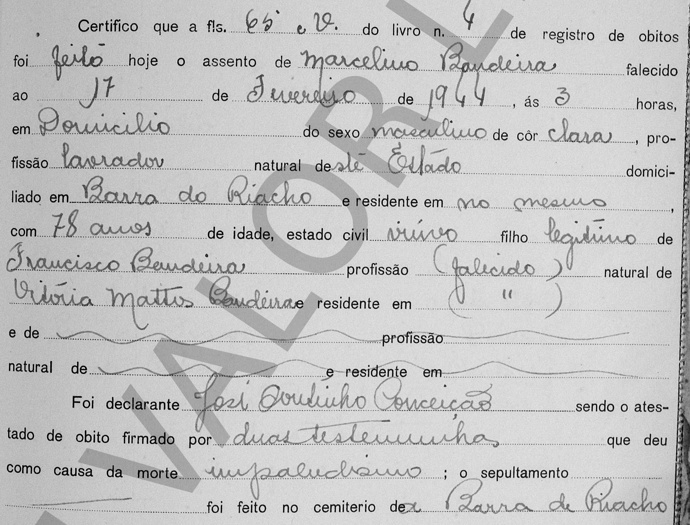 Certifico que a fls. 65 e V. do livro n. 4 de registro de obitos
foi feito hoje o assento de Marcelino Bandeira falecido
ao 17 de Fevereiro de 1944, ás 3 horas,
em Domicilio do sexo masculino de côr clara, pro-
fissão lavrador natural deste Estado domici-
liado em Barra do Riacho e residente em no mesmo,
com 78 anos de idade, estado civil viúvo filho legitimo de
Francisco Bandeira profissão (falecido) natural de
Vitória Mattos Bandeira e residente em ( " )
e de profissão
natural de e residente em
Foi declarante José Coutinho Conceição sendo o ates-
tado de obito firmado por duas testemunhas que deu
como causa da morte impaludismo ; o sepultamento
foi feito no cemiterio de Barra de Riacho
VALOR